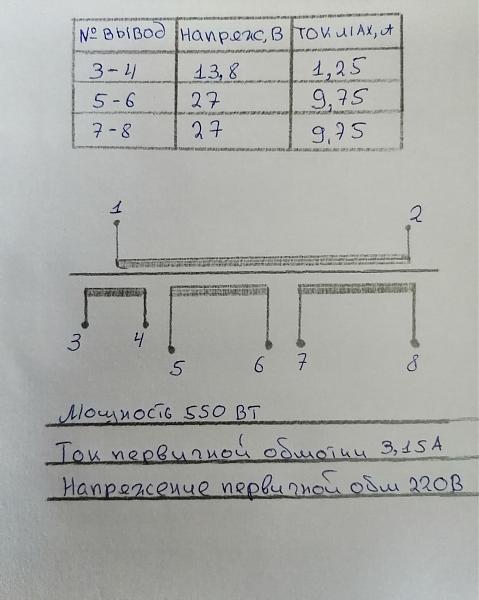 № ВЫВОД НАПРЯЖ, В ТОК МАХ, А
3-4 13,8 1,25
5-6 27 9,75
7-8 27 9,75
1 2
3 4 5 6 7 8
Мощность 550 ВТ
Ток первичной обмотки 3,15А
Напряжение первичной обм 220В